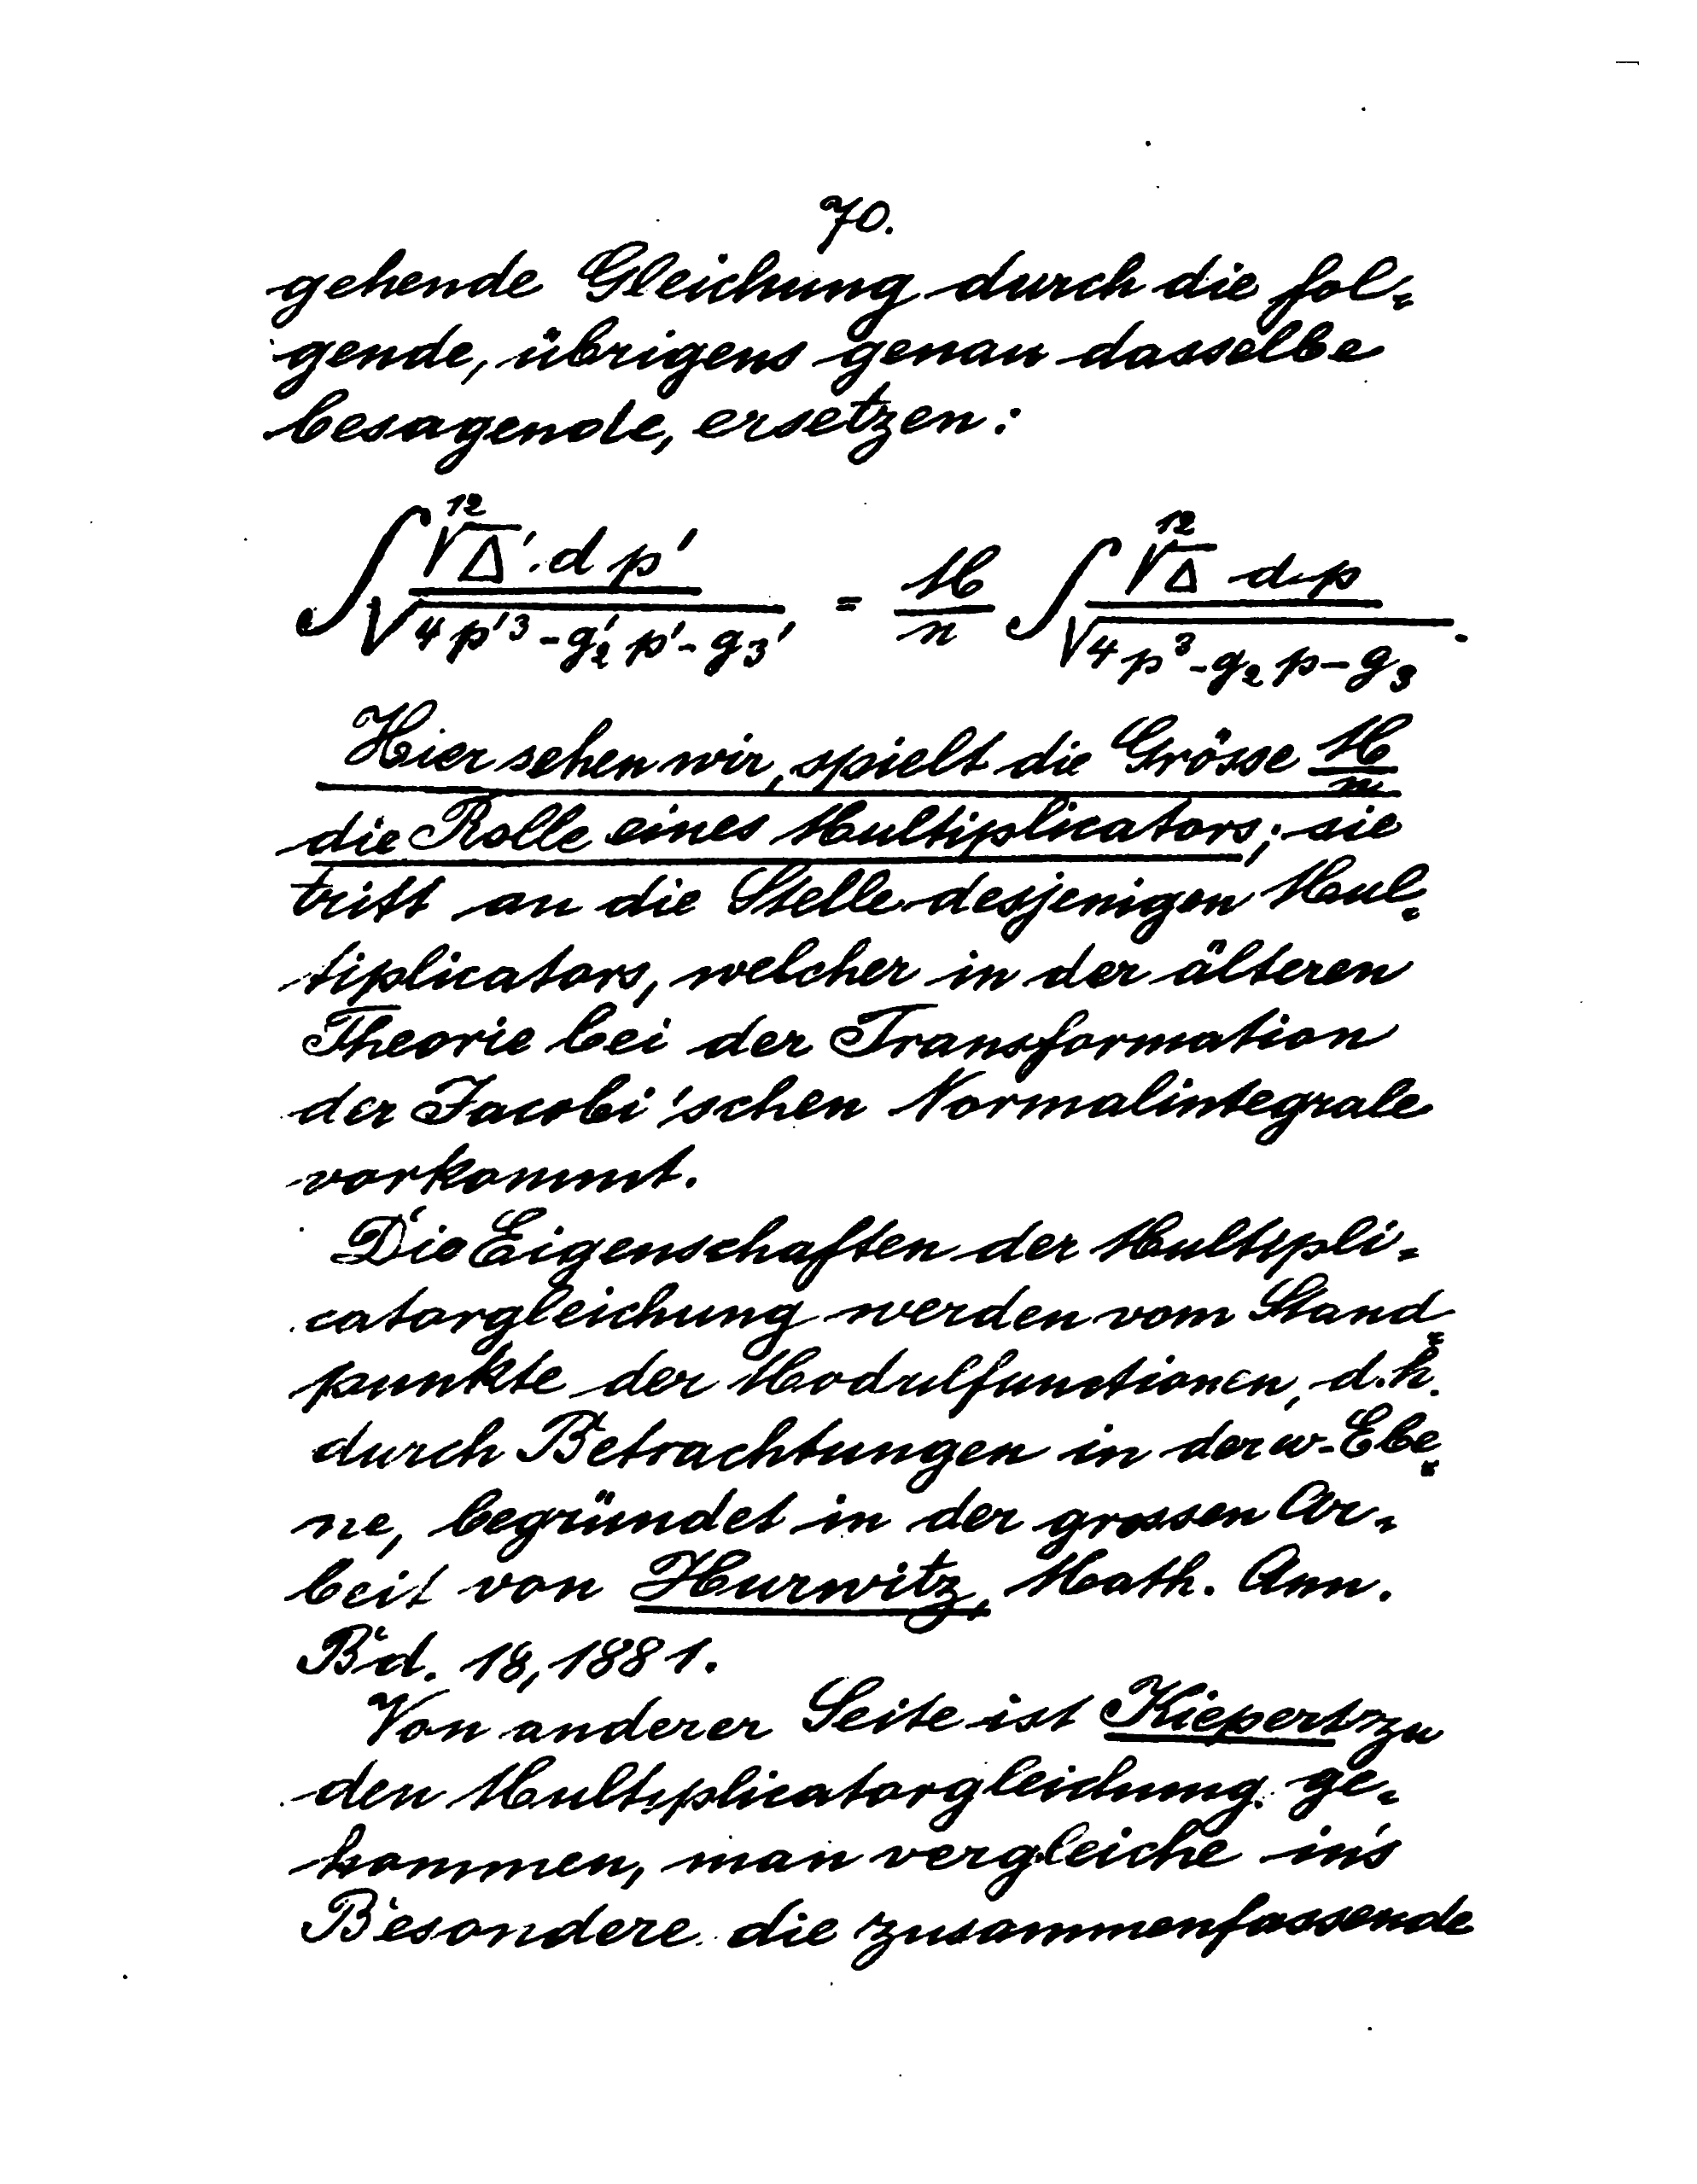 70.
gehende Gleichung durch die fol-
gende, übrigens genau dasselbe
besagende, ersetzen:
∫ ¹²√Δ′ · dp′ / √(4p′³ - g₂′p′ - g₃′) = M/n ∫ ¹²√Δ dp / √(4p³ - g₂p - g₃).
Hier sehen wir, spielt die Grösse M/n
die Rolle eines Multiplicators; sie
tritt an die Stelle desjenigen Mul-
tiplicators, welcher in der älteren
Theorie bei der Transformation
der Jacobi'schen Normalintegrale
vorkommt.
Die Eigenschaften der Multipli-
catorgleichung werden vom Stand-
punkte der Modulfunctionen, d.h.
durch Betrachtungen in der ω-Ebe-
ne, begründet in der grossen Ar-
beit von Hurwitz, Math. Ann.
Bd. 18, 1881.
Von anderer Seite ist Kiepert zu
den Multiplicatorgleichung. ge-
kommen, man vergleiche in's
Besondere die zusammenfassende